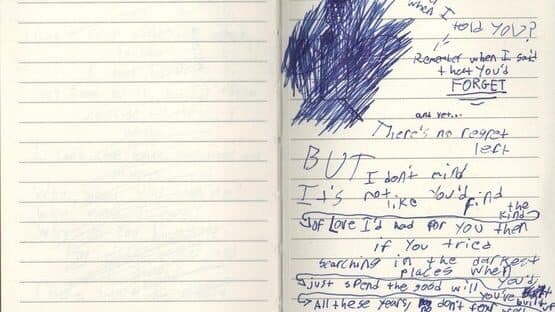 when I
told YOU?
Remember when I said
that You'd
FORGET
and yet...
There's no regret
left
BUT I don't mind
It's not like You'd find
the kind
of Love I'd had for You then
if You tried
searching in the darkest
places when
just spend the good will You'd
You've built up
All these years, don't for